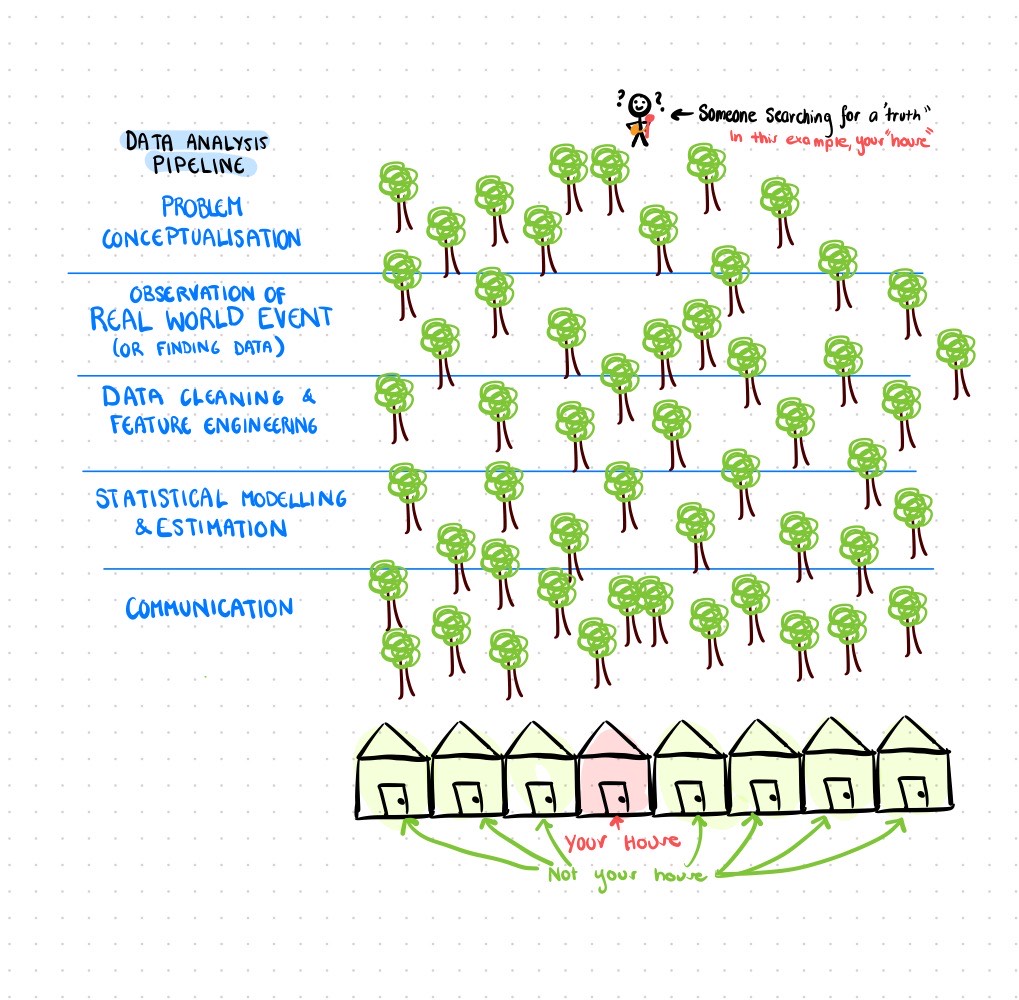 ? ?
← Someone searching for a "truth"
In this example, your "house"
DATA ANALYSIS
PIPELINE
PROBLEM
CONCEPTUALISATION
OBSERVATION OF
REAL WORLD EVENT
(OR FINDING DATA)
DATA CLEANING &
FEATURE ENGINEERING
STATISTICAL MODELLING
& ESTIMATION
COMMUNICATION
Your House
Not your house